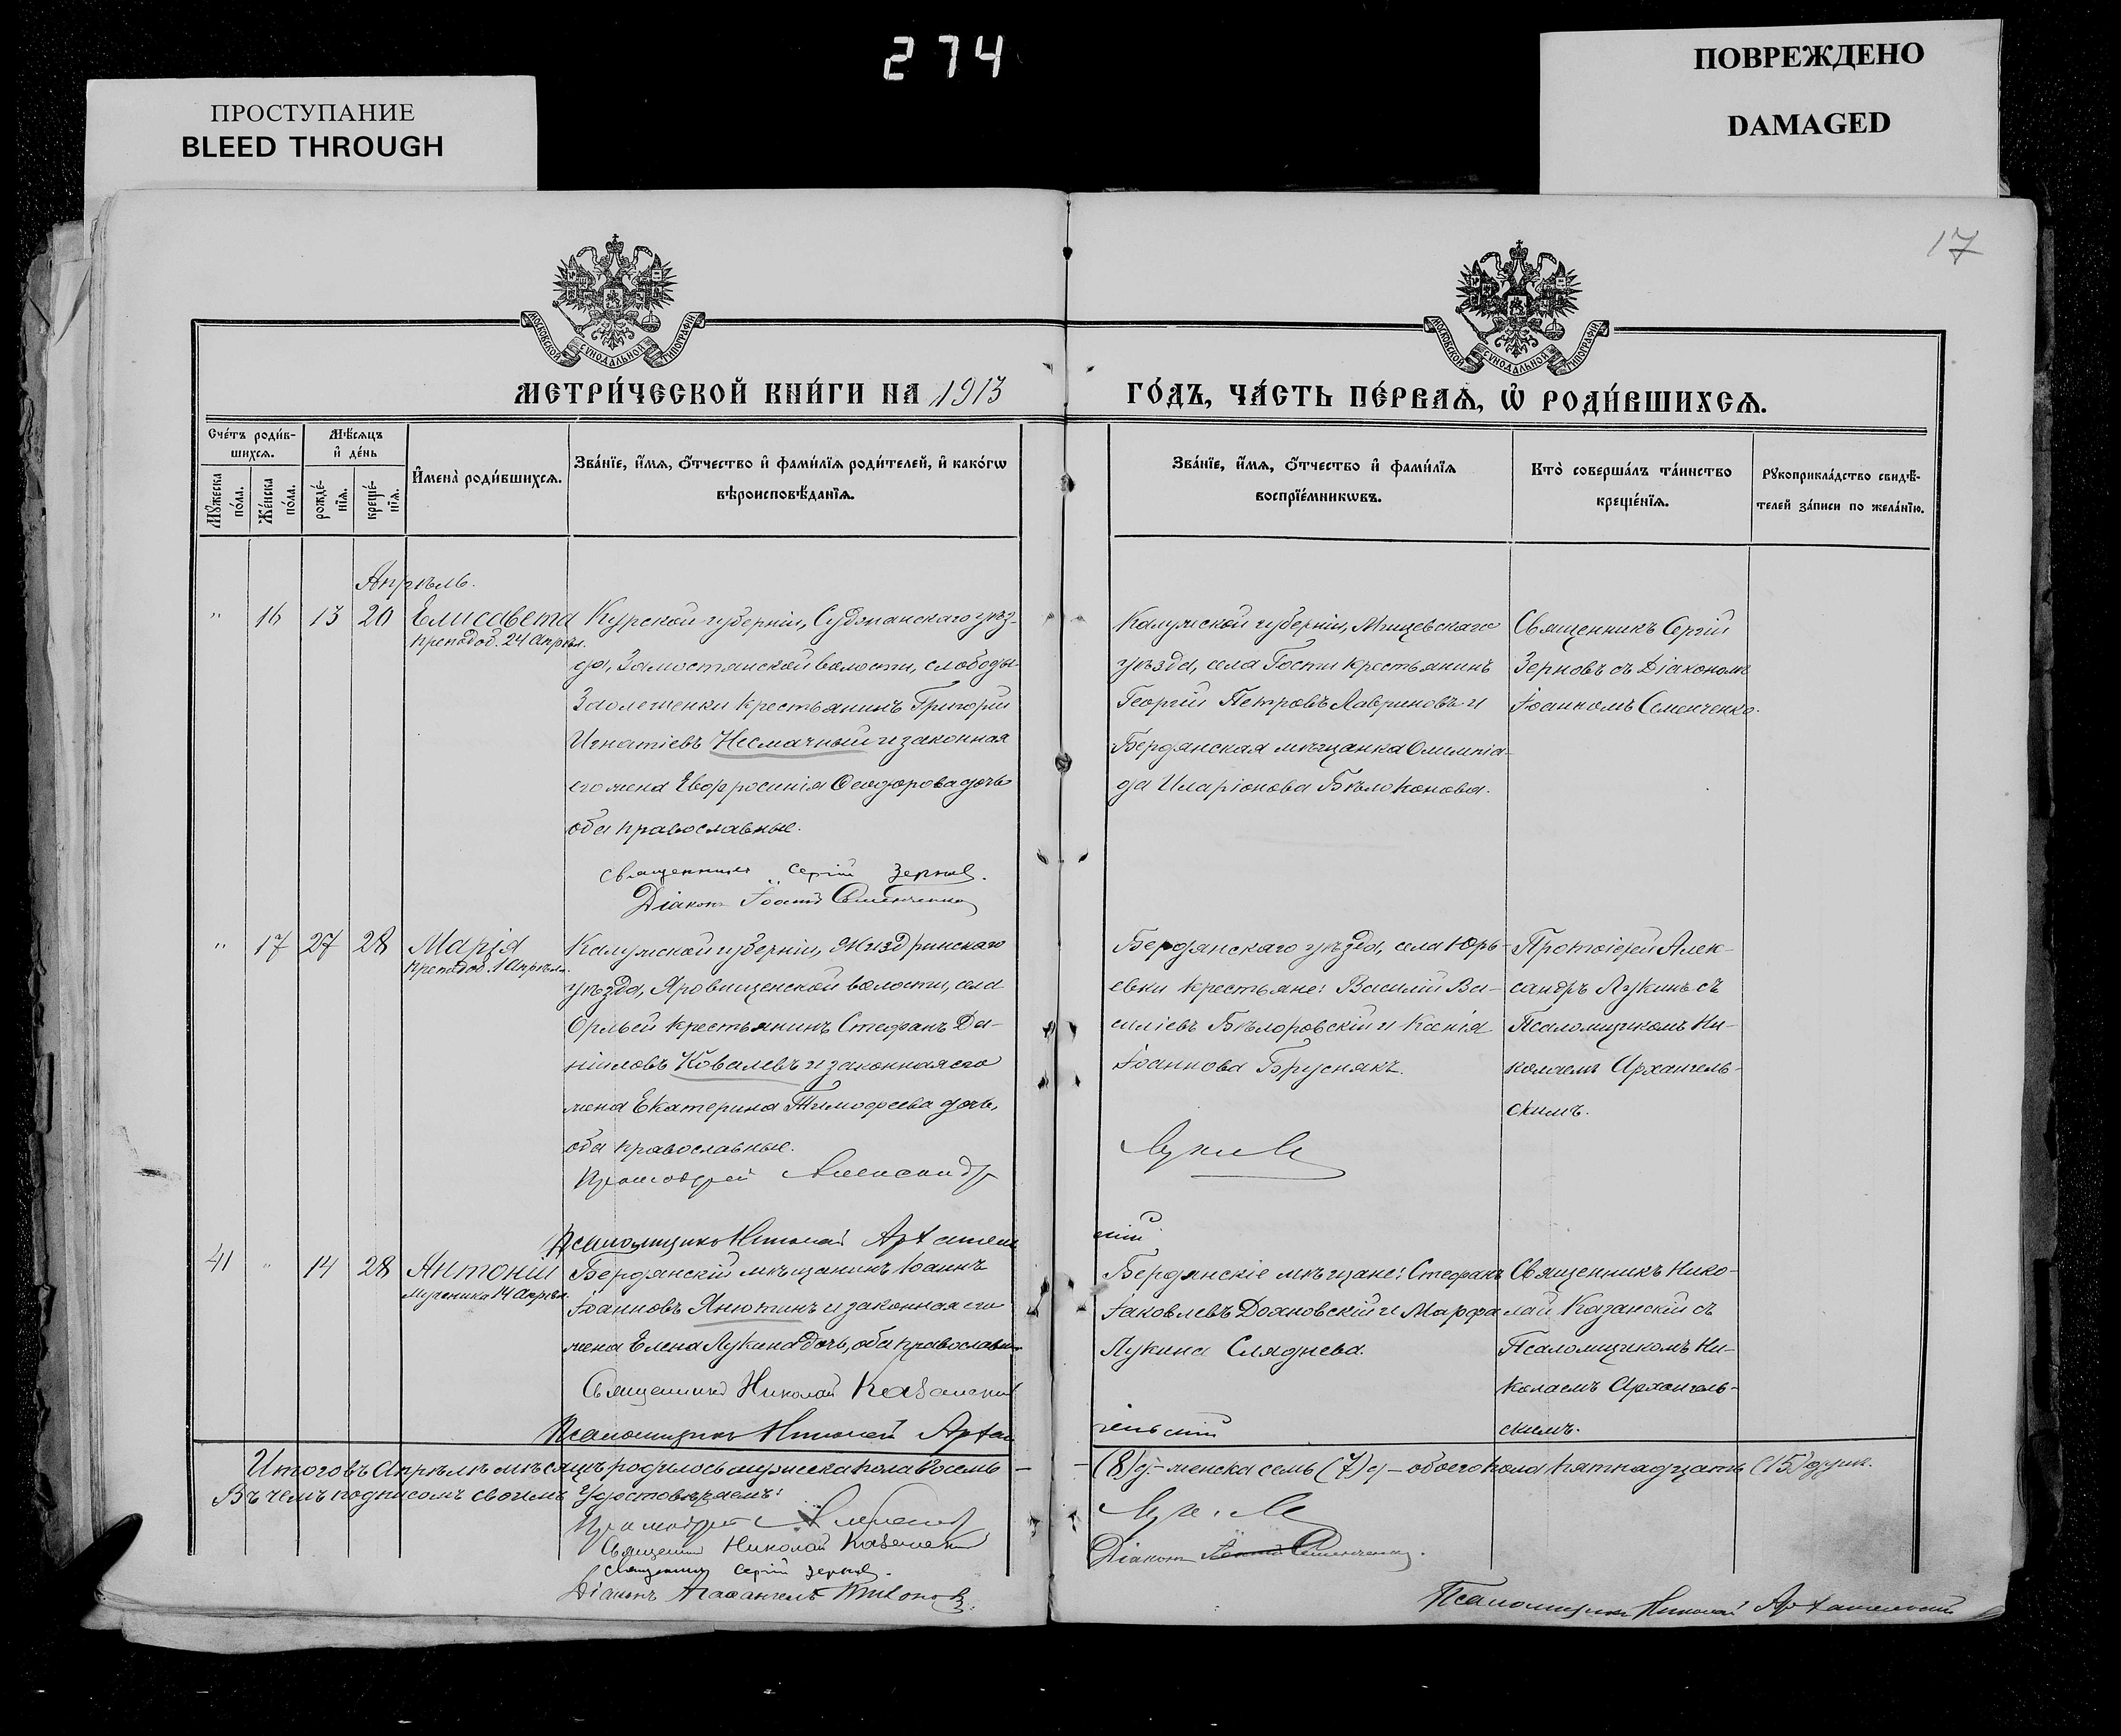 274
ПРОСТУПАНИЕ
BLEED THROUGH
ПОВРЕЖДЕНО
DAMAGED
17
МОСКОВСКОЙ СѴНОДАЛЬНОЙ ТИПОГРАФІИ
МОСКОВСКОЙ СѴНОДАЛЬНОЙ ТИПОГРАФІИ
МЕТРИ́ЧЕСКОЙ КНИ́ГИ НА 1913
ГО́ДЪ, ЧА́СТЬ ПЕ́РВАѦ, Ѡ҆ РОДИ́ВШИХСѦ.
Сче́тъ роди́в-
шихсѧ.
Мѣ́сѧцъ
и҆ де́нь
Мꙋ́жеска
по́ла.
Же́нска
по́ла.
рожде́-
нїѧ.
креще́-
нїѧ.
И҆мена̀ роди́вшихсѧ.
Зва́нїе, и҆́мѧ, ѻ҆́тчество и҆ фами́лїѧ роди́телей, и҆ како́гѡ
вѣроисповѣ́данїѧ.
Зва́нїе, и҆́мѧ, ѻ҆́тчество и҆ фами́лїѧ
воспрїе́мникѡвъ.
Кто̀ соверша́лъ та́инство
креще́нїѧ.
Рꙋкоприкла́дство свидѣ́-
телей за́писи по жела́нїю.
Апрѣль.
" 16 13 20 Елисавета
преподоб. 24 Апрѣл.
Курской губерніи, Суджанскаго уѣз-
да, Замостянской волости, слободы
Заолешенки крестьянинъ Григорій
Игнатіевъ Несмачный и законная
его жена Евфросинія Ѳеодорова дочь
оба православные.
Священникъ Сергій Зерновъ.
Діаконъ Іоаннъ Семенченко
Калужской губерніи, Мещевскаго
уѣзда, села Гости крестьянинъ
Георгій Петровъ Лавриновъ и
Бердянская мѣщанка Олимпіа-
да Иларіонова Бѣлоконова.
Священникъ Сергій
Зерновъ съ Діакономъ
Іоанномъ Семенченко.
" 17 27 28 Марія
преподоб. 1 Апрѣля.
Калужской губерніи, Жиздринскаго
уѣзда, Яровщенской волости, села
Орльей крестьянинъ Стефанъ Да-
ніиловъ Ковалевъ и законная его
жена Екатерина Тимофеева дочь,
оба православные.
Протоіерей Александр
Псаломщикъ Николай Архангель
Бердянскаго уѣзда, села Юрь-
евки крестьяне: Василій Ва-
силіевъ Бѣлоровскій и Ксенія
Іоаннова Бруснякъ.
Лукинъ
скій
Протоіерей Алек-
сандръ Лукинъ съ
Псаломщикомъ Ни-
колаемъ Архангель-
скимъ.
41 " 14 28 Антоній
Мученика 14 Апрѣл.
Бердянскій мѣщанинъ Іоаннъ
Іоанновъ Янютинъ и законная его
жена Елена Лукина дочь, оба православн.
Священникъ Николай Казанскій
Псаломщикъ НиколайАрхан
Бердянскіе мѣщане: Стефанъ
Іаковлевъ Дохновскій и Марфа
Лукина Сляднева.
гельскій
Священникъ Нико-
лай Казанскій съ
Псаломщикомъ Ни-
колаемъ Архангель-
скимъ.
Итого въ Апрѣлѣ мѣсяцѣ родилось мужеска пола восемь –
– (8) д – женска семь (7) д – обоего пола пятнадцать (15) душъ.
Въ чемъ подписомъ своимъ удостовѣряемъ:
Протоіерей Александр
Лукинъ
Священникъ Николай Казанскій
Священникъ Сергій Зерновъ.
Діаконъ Іоаннъ Семенченко.
Діаконъ Агаѳангелъ Тихоновъ.
Псаломщикъ Николай Архангельскій